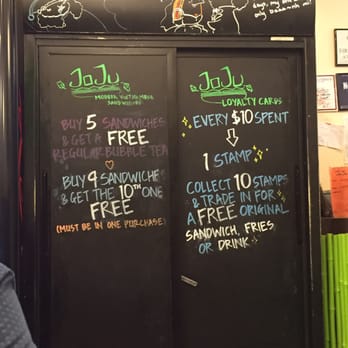 JoJu
MODERN VIETNAMESE
SANDWICHES
BUY 5 SANDWICHES
& GET A FREE
REGULAR BUBBLE TEA
BUY 9 SANDWICHE
& GET THE 10TH ONE
FREE
(MUST BE IN ONE PURCHASE)
JoJu
LOYALTY CARDS
EVERY $10 SPENT
1 STAMP
COLLECT 10 STAMPS
& TRADE IN FOR
A FREE ORIGINAL
SANDWICH, FRIES,
OR DRINK